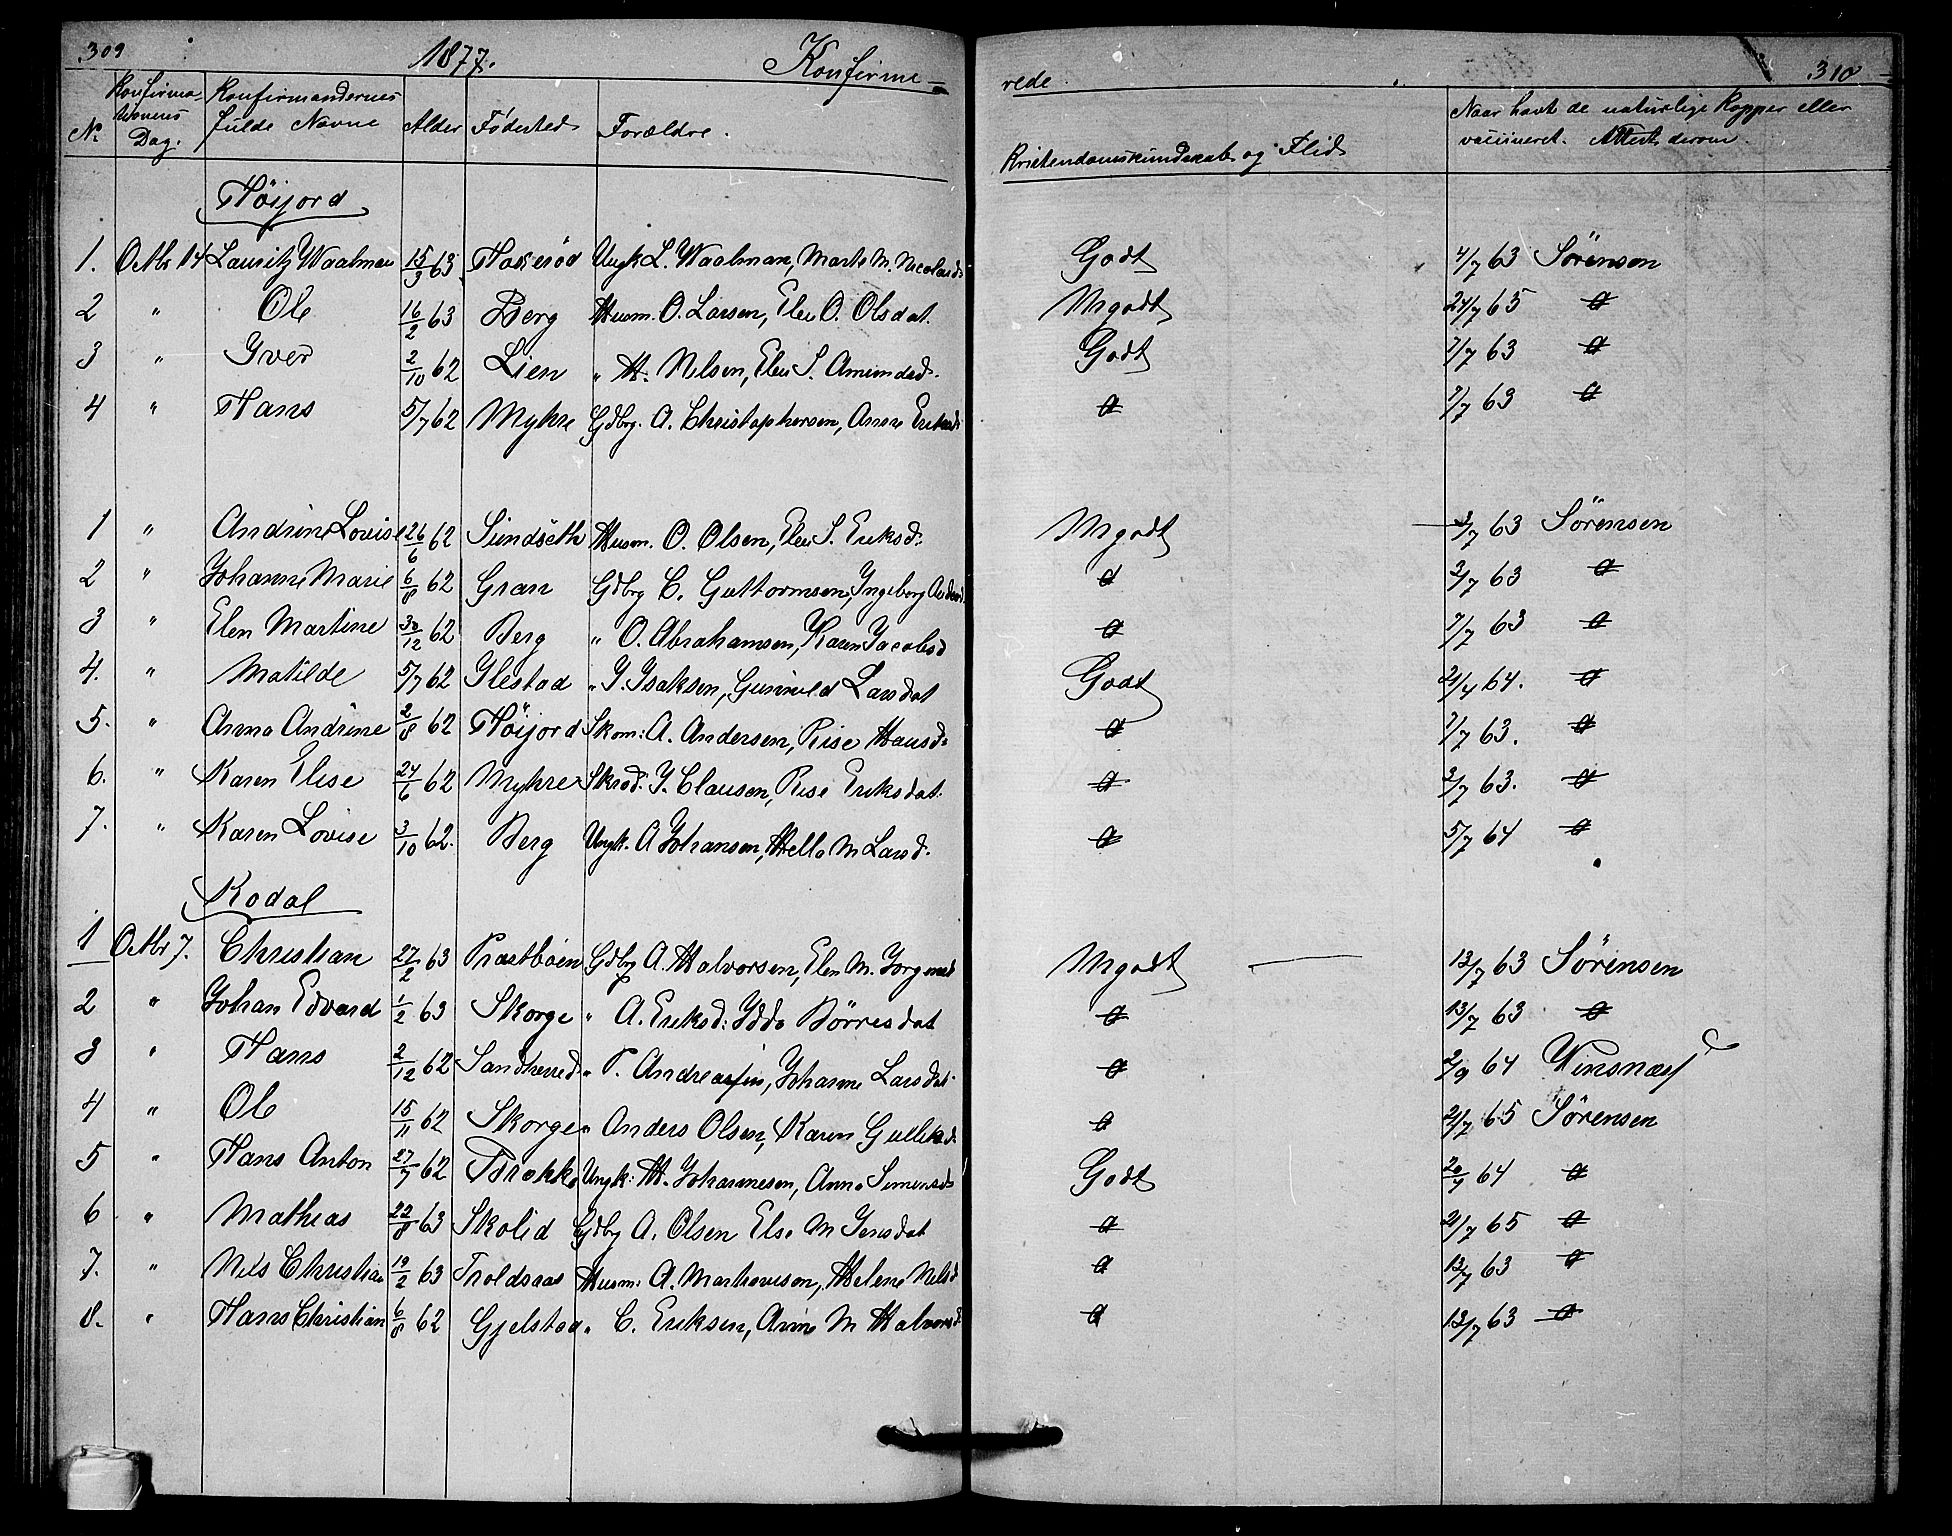 309 1877. Konfirme- rede. 310
No Konfirmationens Dag. Konfirmandernes fulde Navne Alder Fødested Forældre. Kristendomskundskab og Flid Naar havt de naturlige Kopper eller vaccineret. Attest derom.
Høijord
1. Octbr 14 Lauritz Waalman 15/3 63 Haxerød Ungk L. Waalman, Marte M. Nicolaisd. Godt 4/7 63 Sørensen
2 " Ole 16/2 63 Berg Husm. O. Larsen, Elen O. Olsdat. Mgodt 24/7 65 d
3 " Iver 2/10 62 Lien " H. Nilsen, Elen S. Amundsd. Godt 7/7 63 d
4 " Hans 5/7 62 Myhre Gdbrg. A. Christophersen, Anne Eriksd. d 7/7 63 d
1 " Andrine Lovise 26/6 62 Sundseth Husm. O. Olsen, Elen S. Eriksd. Mgodt 3/7 63 Sørensen
2 " Johanne Marie 6/8 62 Gran Gdbrg C. Guttormsen, Ingeborg d 3/7 63 d
3 " Elen Martine 30/12 62 Berg " O. Abrahamsen, Karen Jacobsd d 7/7 63 d
4. " Matilde 5/7 62 Ilestad " I. Isaksen, Gunnild Larsdat Godt 21/4 64. d
5. " Anna Andrine 2/8 62 Høijord Skom: A. Andersen, Rise Hansd. d 7/7 63. d
6. " Karen Elise 24/6 62 Myhre Skræd: I. Clausen, Rise Eriksdat. d 3/7 63. d
7. " Karen Lovise 3/10 62. Berg Ungk. A Johansen, Helle M Larsd. d 5/7 64 d
Kodal
1 Octbr 7. Christian 27/2 63 Præstbøen Gdbrg A. Halvorsen, Elen M. Jørgensd Mgodt 13/7 63 Sørensen
2 " Johan Edvard 1/2 63 Skorge " A. Eriksd: Idde Børresdat d 13/7 63 d
3 " Hans 2/12 62 Sandherred " P. Andreassen, Johanne Larsdat. d 2/9 64 Winsnæs
4 " Ole 15/11 62 Skorge " Anders Olsen, Karen Gulliksd. d 21/7 65 Sørensen
5 " Hans Anton 27/7 62 Trokke Ungk: H. Johannesen, Anne Simensd Godt 20/7 64 d
6 " Mathias 22/8 63 Skolid Gdbrg A. Olsen Else M Jensdat d 21/7 65 d
7. " Nils Christian 19/2 63 Troldsaas Husm: A. Martinvison, Helene Nilsd d 13/7 63 d
8. " Hans Christian 6/8 62 Gjelstad " C. Eriksen, Anne M Halvorsd d 13/7 63 d